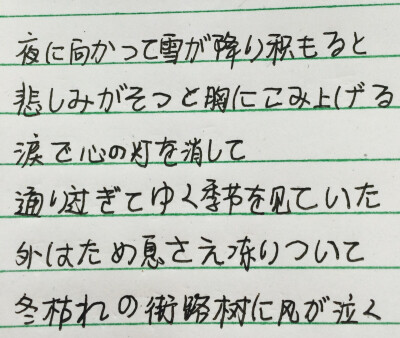 夜に向かって雪が降り積もると
悲しみがそっと胸にこみ上げる
涙で心の灯を消して
通り过ぎてゆく季节を见ていた
外はため息さえ冻りついて
冬枯れの街路树に风が泣く